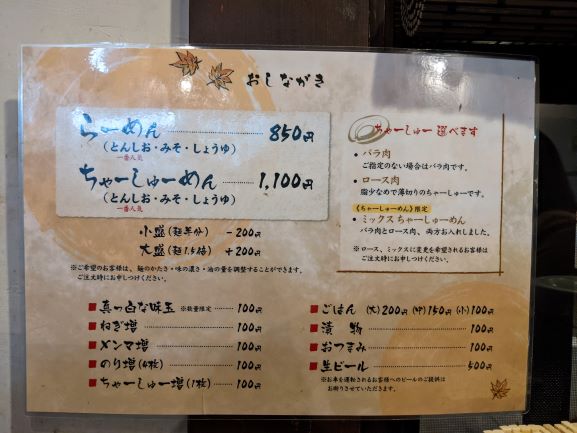 おしながき
らーめん 850円
(とんしお・みそ・しょうゆ)
一番人気
ちゃーしゅーめん 1,100円
(とんしお・みそ・しょうゆ)
一番人気
小盛(麺半分) -200円
大盛(麺1.5倍) +200円
※ご希望のお客様は、麺のかたさ・味の濃さ・油の量を調整することができます。
ご注文時にお申しつけください。
ちゃーしゅー選べます
• バラ肉
ご指定のない場合はバラ肉です。
• ロース肉
脂少なめで薄切りのちゃーしゅーです。
《ちゃーしゅーめん》限定
• ミックスちゃーしゅーめん
バラ肉とロース肉、両方お入れしました。
※ロース、ミックスに変更を希望されるお客様は
ご注文時にお申しつけください。
■ 真っ白な味玉 ※数量限定 100円
■ ねぎ増 100円
■ メンマ増 100円
■ のり増(4枚) 100円
■ ちゃーしゅー増(1枚) 100円
■ ごはん (大)200円 (中)150円 (小)100円
■ 漬物 100円
■ おつまみ 100円
■ 生ビール 500円
※お車を運転されるお客様へのビールのご提供は
お断りさせていただきます。